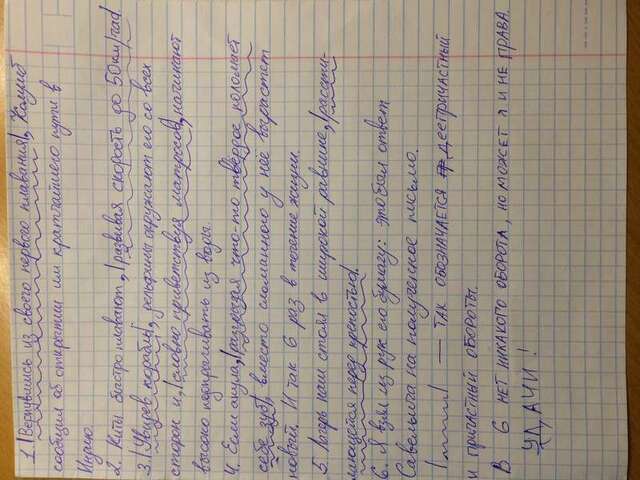 1. |Вернувшись из своего первого плавания|, Колумб
сообщил об открытии им кратчайшего пути в
Индию
2. Киты быстро плавают, |развивая скорость до 50 км/час|
3. |Увидев корабль|, дельфины окружают его со всех
сторон и, |словно приветствуя матросов|, начинают
высоко выпрыгивать из воды.
4. Если акула, |разгрызая что-то твёрдое поломает
себе зуб|, вместо сломанного у неё вырастет
новый. И так 6 раз в течение жизни.
5. Лагерь наш стоял в широкой равнине, |рассти-
лающейся перед крепостью|.
6. Я взял из рук его бумагу: это был ответ
Савельича на полученное письмо.
|~~~~| — ТАК ОБОЗНАЧАЕТСЯ ДЕЕПРИЧАСТНЫЙ
И ПРИЧАСТНЫЙ ОБОРОТЫ.
В 6 НЕТ НИКАКОГО ОБОРОТА, НО МОЖЕТ Я И НЕ ПРАВА.
УДАЧИ!